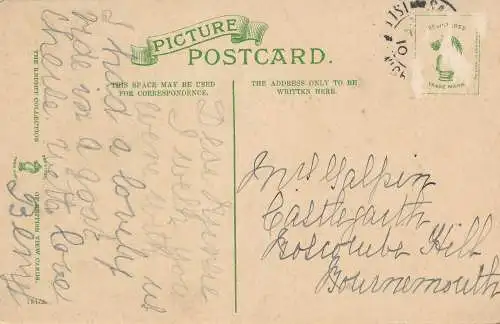 PICTURE
POSTCARD.
THIS SPACE MAY BE USED
FOR CORRESPONDENCE.
THE ADDRESS ONLY TO BE
WRITTEN HERE.
TRADE MARK
Mrs Galpin
Castlegarth
Boscombe Hill
Bournemouth
Dear
I wish
you were with us
I had a lovely
ride in a goat
chaise with love
THE KNIGHT COLLECTION
OF BRITISH VIEW CARDS.